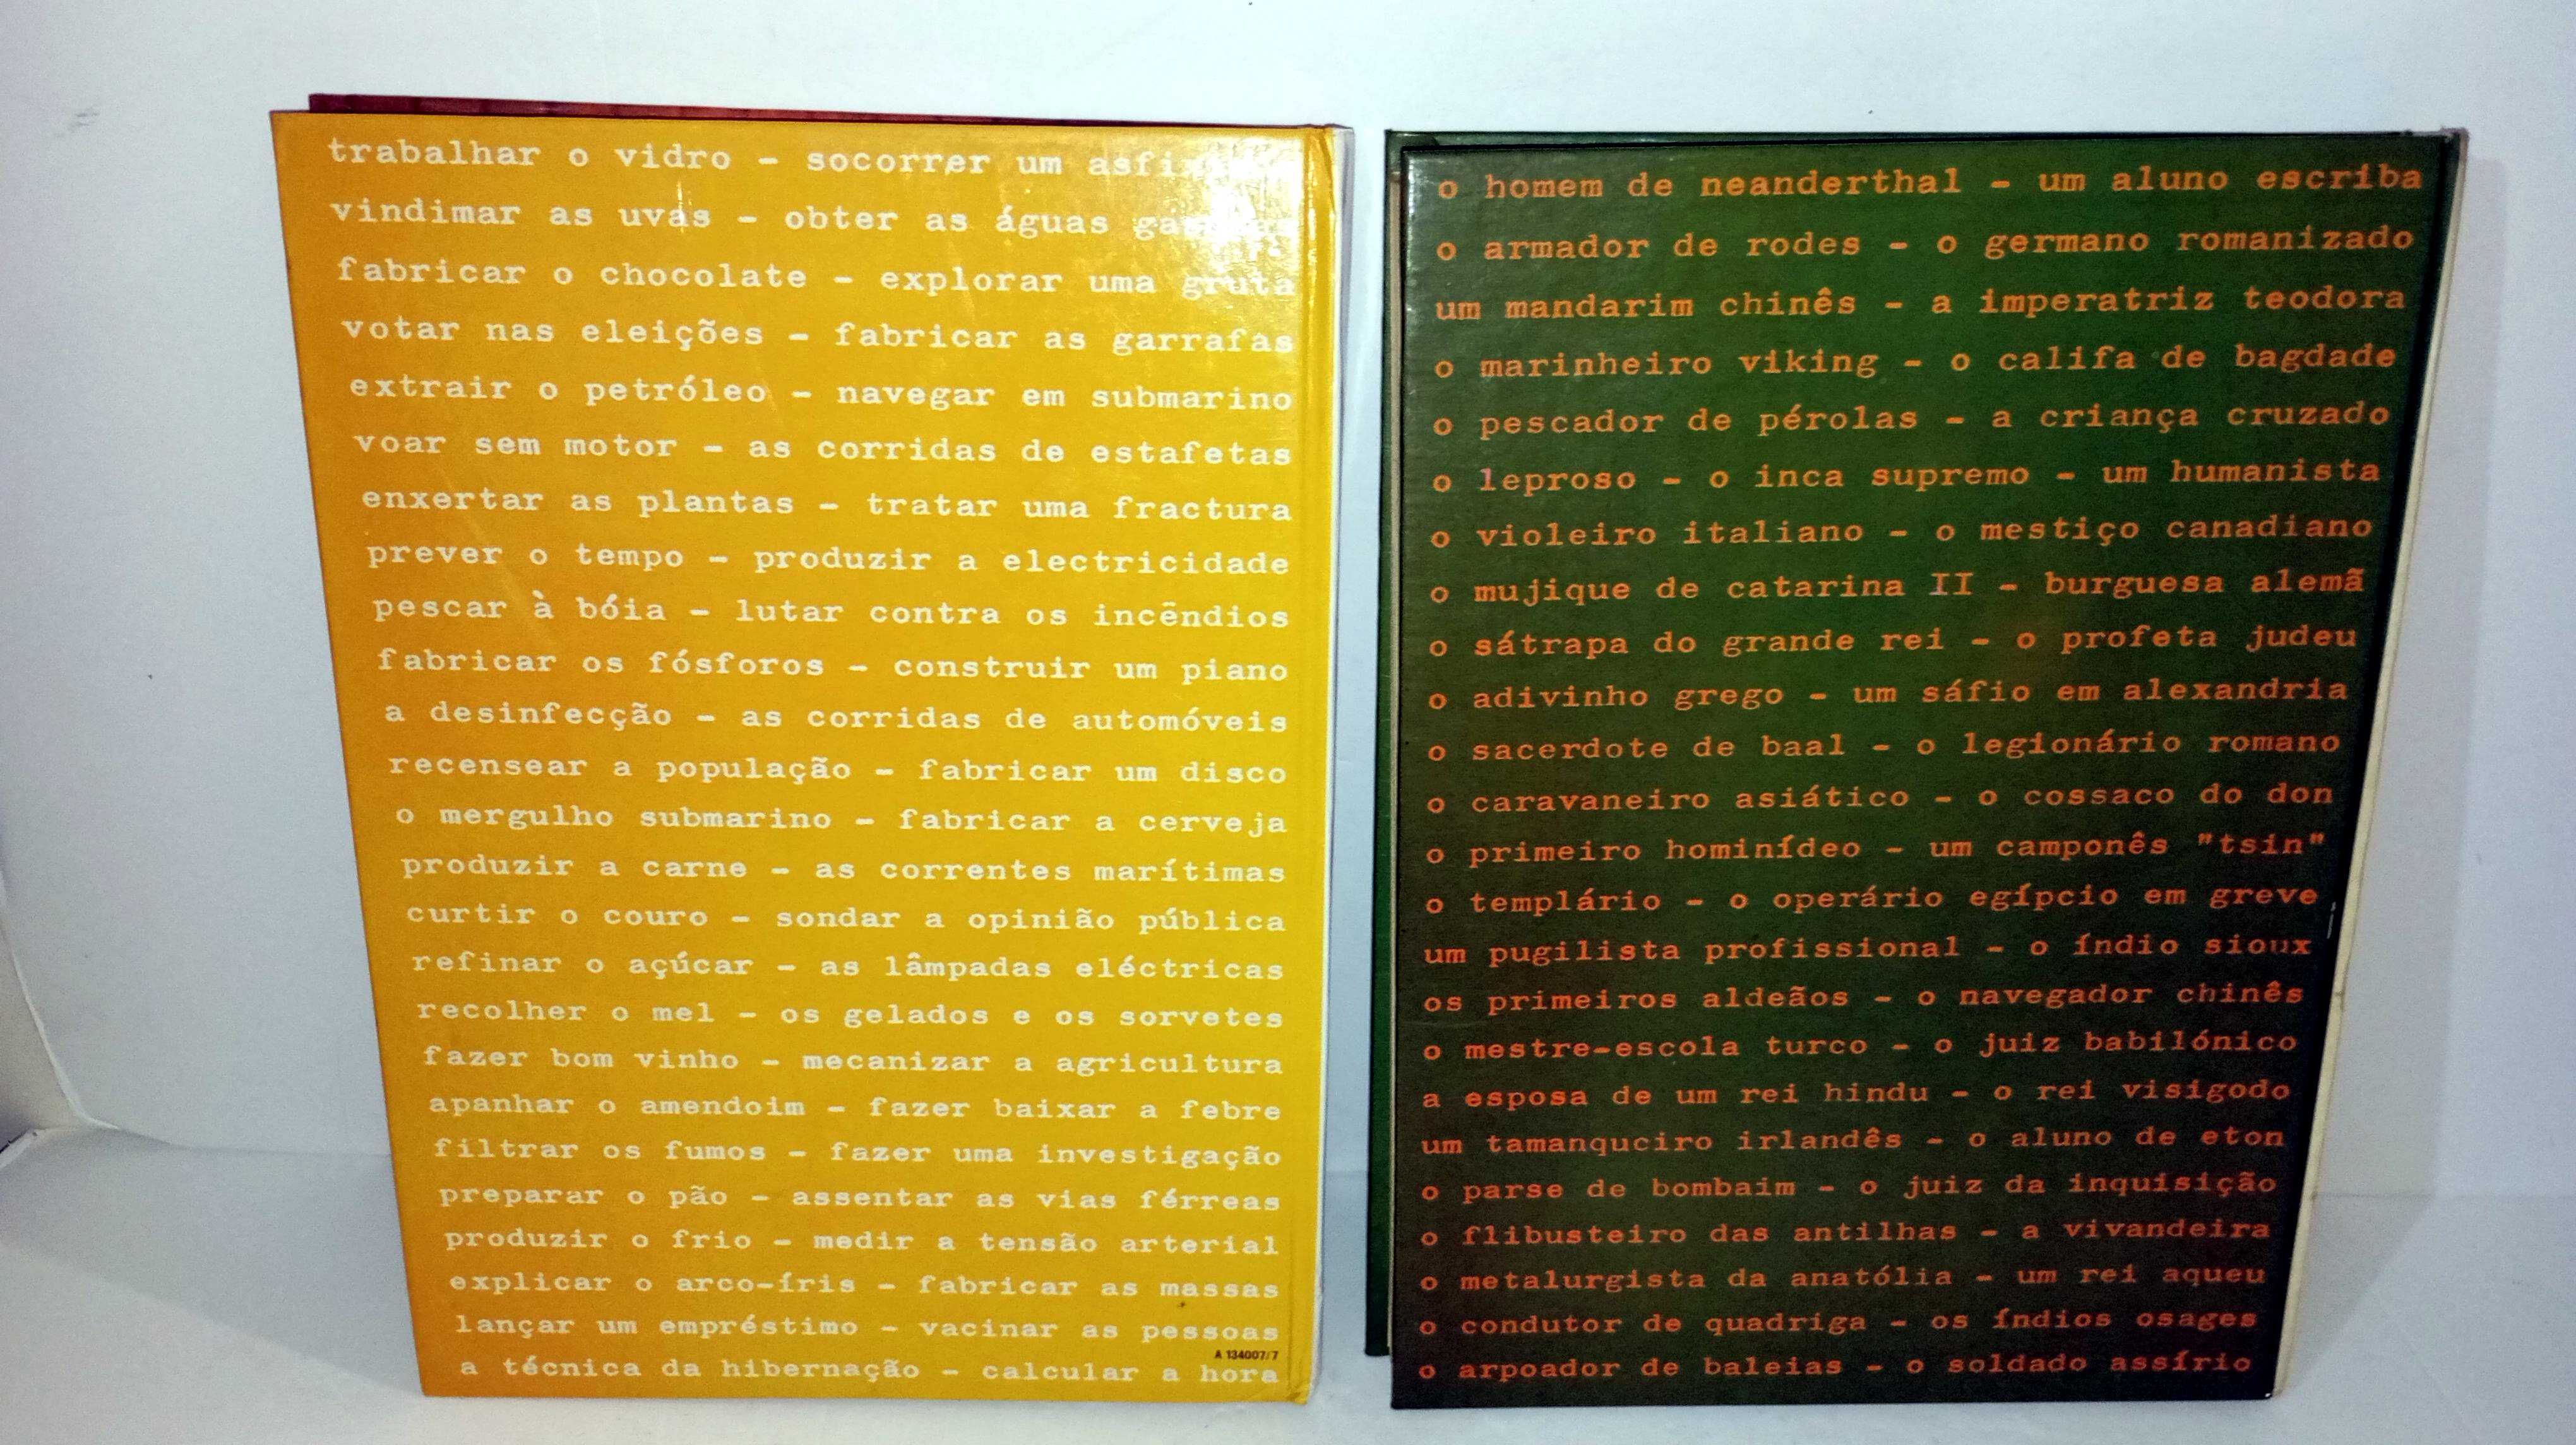 trabalhar o vidro - socorrer um
vindimar as uvas - obter as águas
fabricar o chocolate - explorar uma gruta
votar nas eleições - fabricar as garrafas
extrair o petróleo - navegar em submarino
voar sem motor - as corridas de estafetas
enxertar as plantas - tratar uma fractura
prever o tempo - produzir a electricidade
pescar à bóia - lutar contra os incêndios
fabricar os fósforos - construir um piano
a desinfecção - as corridas de automóveis
recensear a população - fabricar um disco
o mergulho submarino - fabricar a cerveja
produzir a carne - as correntes marítimas
curtir o couro - sondar a opinião pública
refinar o açúcar - as lâmpadas eléctricas
recolher o mel - os gelados e os sorvetes
fazer bom vinho - mecanizar a agricultura
apanhar o amendoim - fazer baixar a febre
filtrar os fumos - fazer uma investigação
preparar o pão - assentar as vias férreas
produzir o frio - medir a tensão arterial
explicar o arco-íris - fabricar as massas
lançar um empréstimo - vacinar as pessoas
A 134007/7
a técnica da hibernação - calcular a hora
o homem de neanderthal - um aluno escriba
o armador de rodes - o germano romanizado
um mandarim chinês - a imperatriz teodora
o marinheiro viking - o califa de bagdade
o pescador de pérolas - a criança cruzado
o leproso - o inca supremo - um humanista
o violeiro italiano - o mestiço canadiano
o mujique de catarina II - burguesa alemã
o sátrapa do grande rei - o profeta judeu
o adivinho grego - um sáfio em alexandria
o sacerdote de baal - o legionário romano
o caravaneiro asiático - o cossaco do don
o primeiro hominídeo - um camponês "tsin"
o templário - o operário egípcio em greve
um pugilista profissional - o índio sioux
os primeiros aldeãos - o navegador chinês
o mestre-escola turco - o juiz babilónico
a esposa de um rei hindu - o rei visigodo
um tamanqueiro irlandês - o aluno de eton
o parse de bombaim - o juiz da inquisição
o flibusteiro das antilhas - a vivandeira
o metalurgista da anatólia - um rei aqueu
o condutor de quadriga - os índios osages
o arpoador de baleias - o soldado assírio